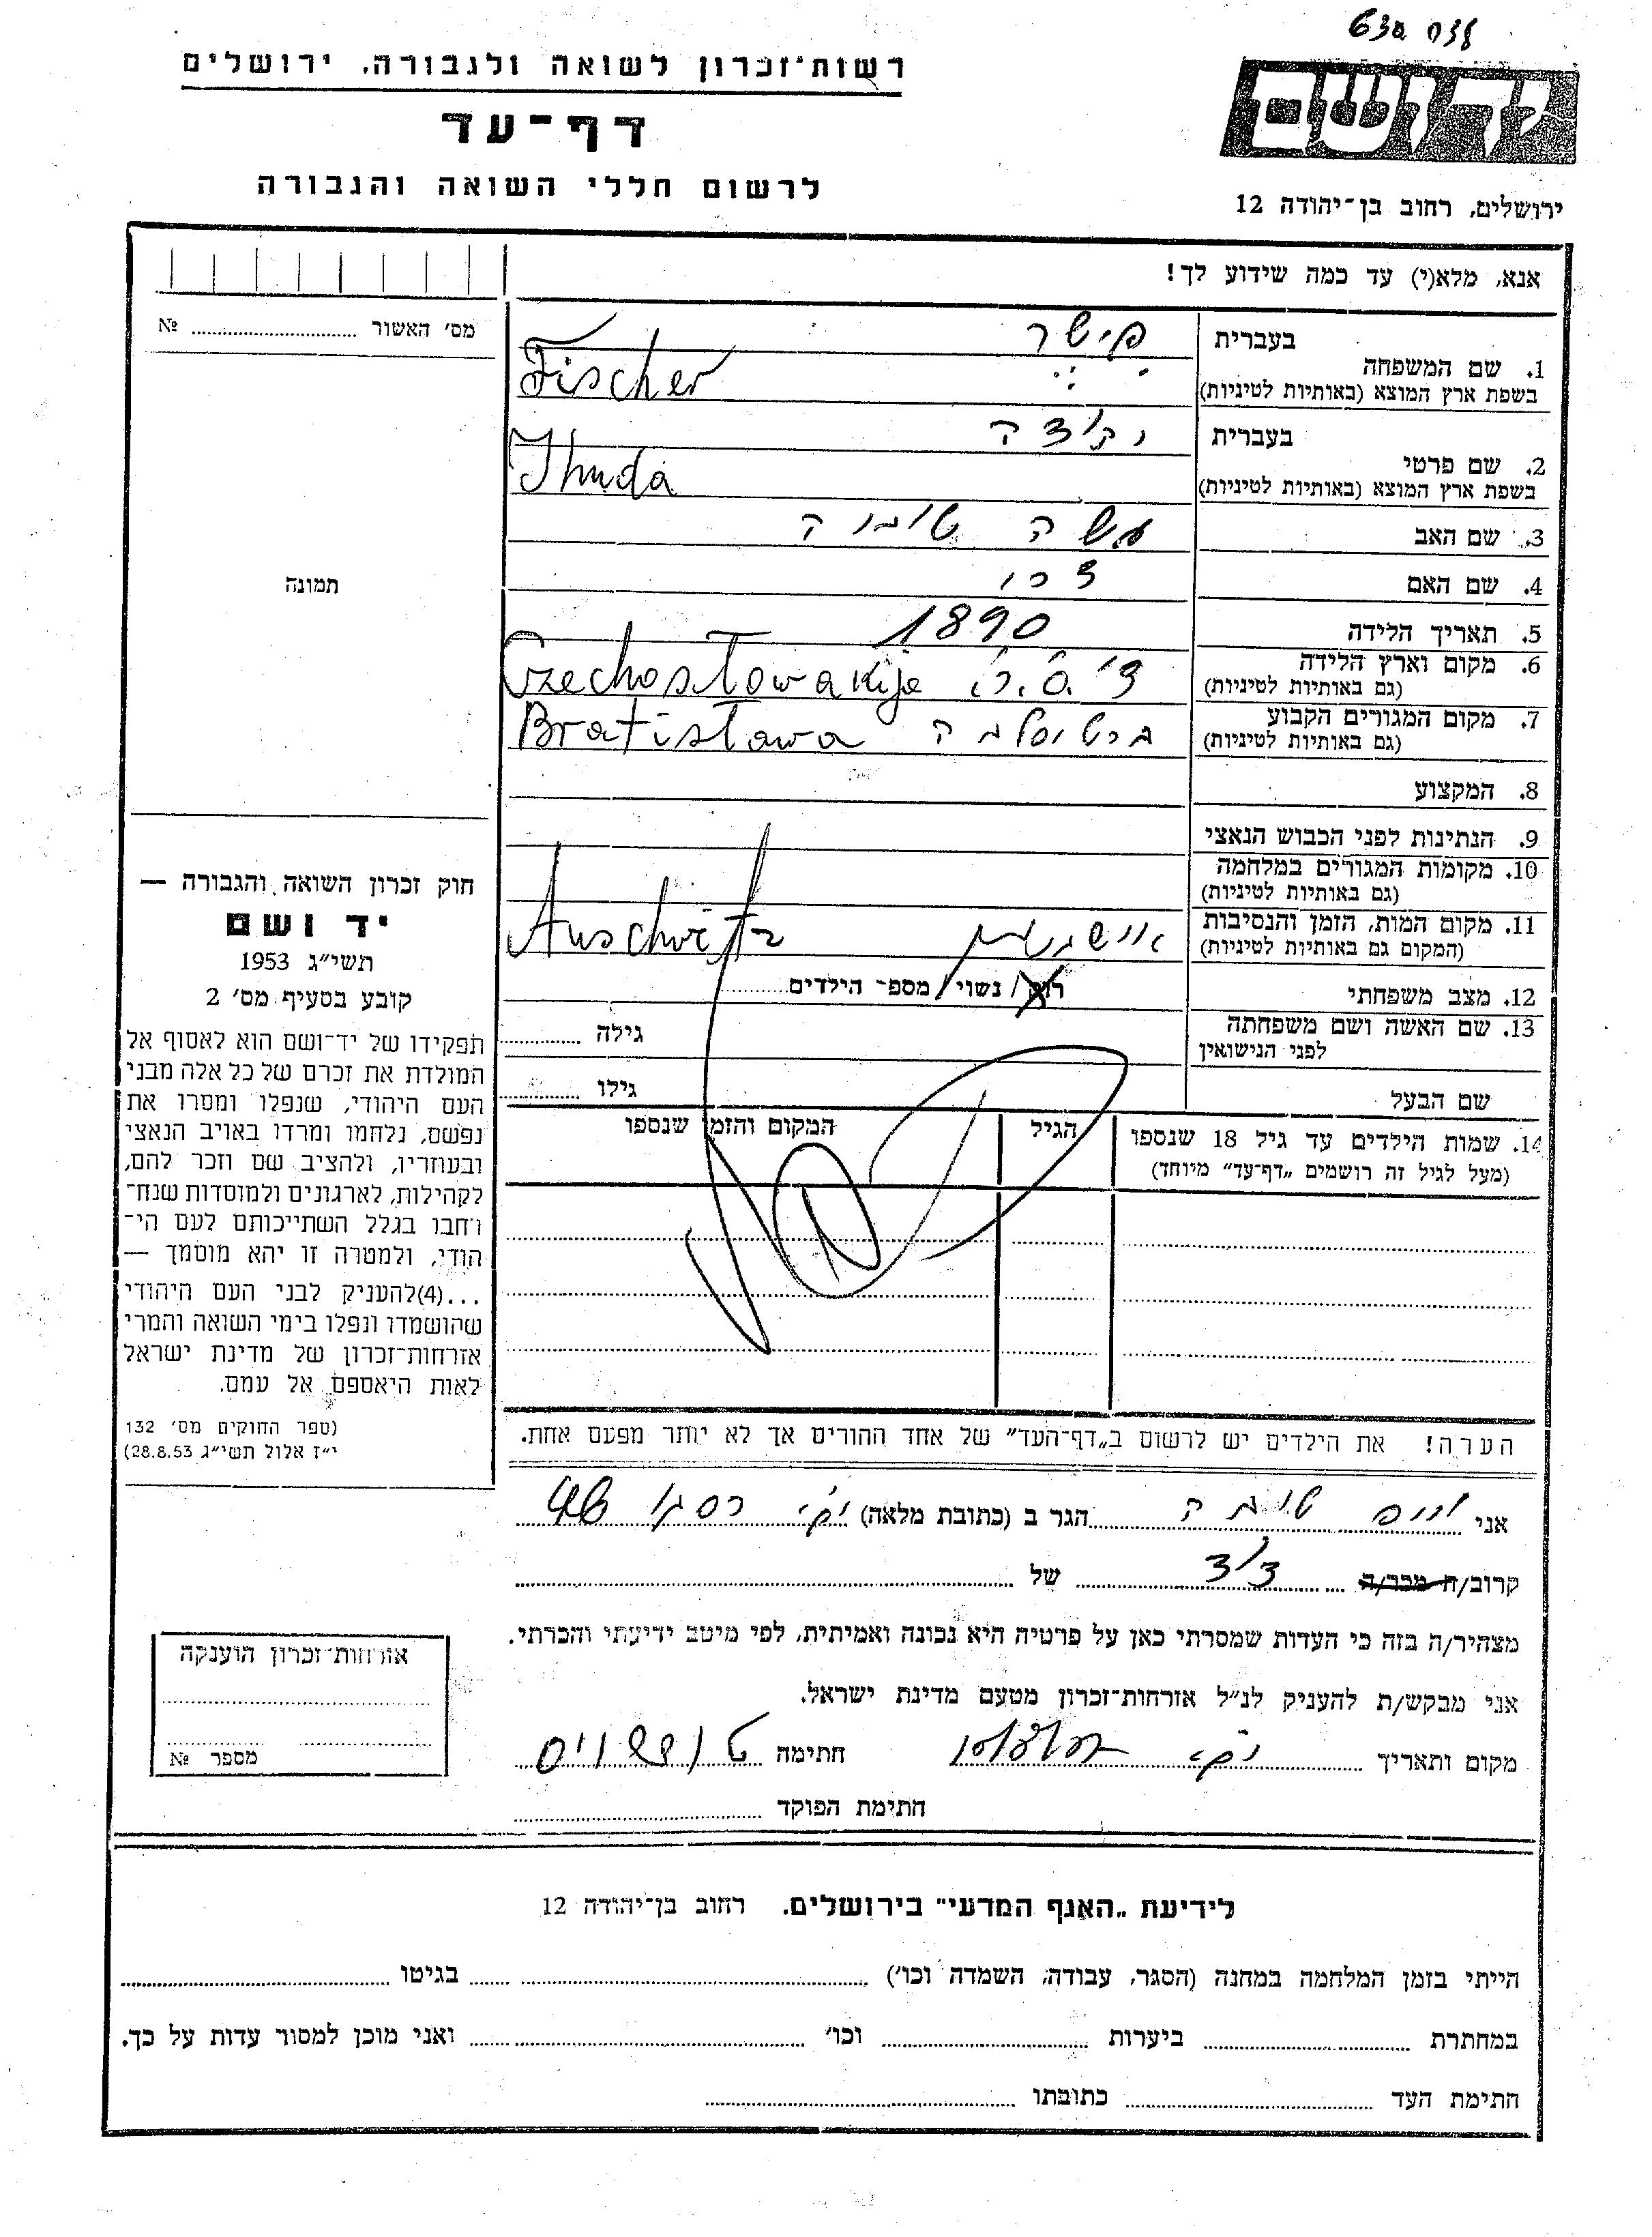 רשות־זכרון לשואה ולגבורה. ירושלים
דף־עד
לרשום חללי השואה והגבורה
יד ושם
ירושלים, רחוב בן־יהודה 12
אנא, מלא(י) עד כמה שידוע לך!
מס׳ האשור № 
1. שם המשפחה
בעברית
פישר
בשפת ארץ המוצא (באותיות לטיניות)
Fischer
2. שם פרטי
בעברית
יהודה
בשפת ארץ המוצא (באותיות לטיניות)
Ihuda
3. שם האב
משה
4. שם האם
5. תאריך הלידה
1890
6. מקום וארץ הלידה
(גם באותיות לטיניות)
צ׳.ס.ר. Czechosłowakije
7. מקום המגורים הקבוע
(גם באותיות לטיניות)
ברטיסלבה Bratisława
8. המקצוע
9. הנתינות לפני הכבוש הנאצי
10. מקומות המגורים במלחמה
(גם באותיות לטיניות)
11. מקום המות, הזמן והנסיבות
(המקום גם באותיות לטיניות)
Auschwitz
12. מצב משפחתי
רוק / נשוי / מספר הילדים
13. שם האשה ושם משפחתה
לפני הנישואין
גילה
שם הבעל
גילו
14. שמות הילדים עד גיל 18 שנספו
(מעל לגיל זה רושמים „דף־עד” מיוחד)
הגיל
המקום והזמן שנספו
הערה! את הילדים יש לרשום ב„דף־העד” של אחד ההורים אך לא יותר מפעם אחת.
תמונה
חוק זכרון השואה והגבורה —
יד ושם
תשי״ג 1953
קובע בסעיף מס׳ 2
תפקידו של יד־ושם הוא לאסוף אל
המולדת את זכרם של כל אלה מבני
העם היהודי, שנפלו ומסרו את
נפשם, נלחמו ומרדו באויב הנאצי
ובעוזריו, ולהציב שם וזכר להם,
לקהילות, לארגונים ולמוסדות שנח־
רחבו בגלל השתייכותם לעם הי־
הודי, ולמטרה זו יהא מוסמך —
...(4)להעניק לבני העם היהודי
שהושמדו ונפלו בימי השואה והמרי
אזרחות־זכרון של מדינת ישראל
לאות היאספם אל עמם.
(ספר החוקים מס׳ 132
י״ז אלול תשי״ג 28.8.53)
אני וייס טובה הגר ב (כתובת מלאה)
קרוב/ה מכר/ה של
מצהיר/ה בזה כי העדות שמסרתי כאן על פרטיה היא נכונה ואמיתית, לפי מיטב ידיעתי והכרתי.
אני מבקש/ת להעניק לנ״ל אזרחות־זכרון מטעם מדינת ישראל.
מקום ותאריך חתימה
חתימת הפוקד
אזרחות־זכרון הוענקה
מספר №
לידיעת „האגף המדעי” בירושלים. רחוב בן־יהודה 12
הייתי בזמן המלחמה במחנה (הסגר, עבודה, השמדה וכו׳) בגיטו
במחתרת ביערות וכו׳ ואני מוכן למסור עדות על כך.
חתימת העד כתובתו